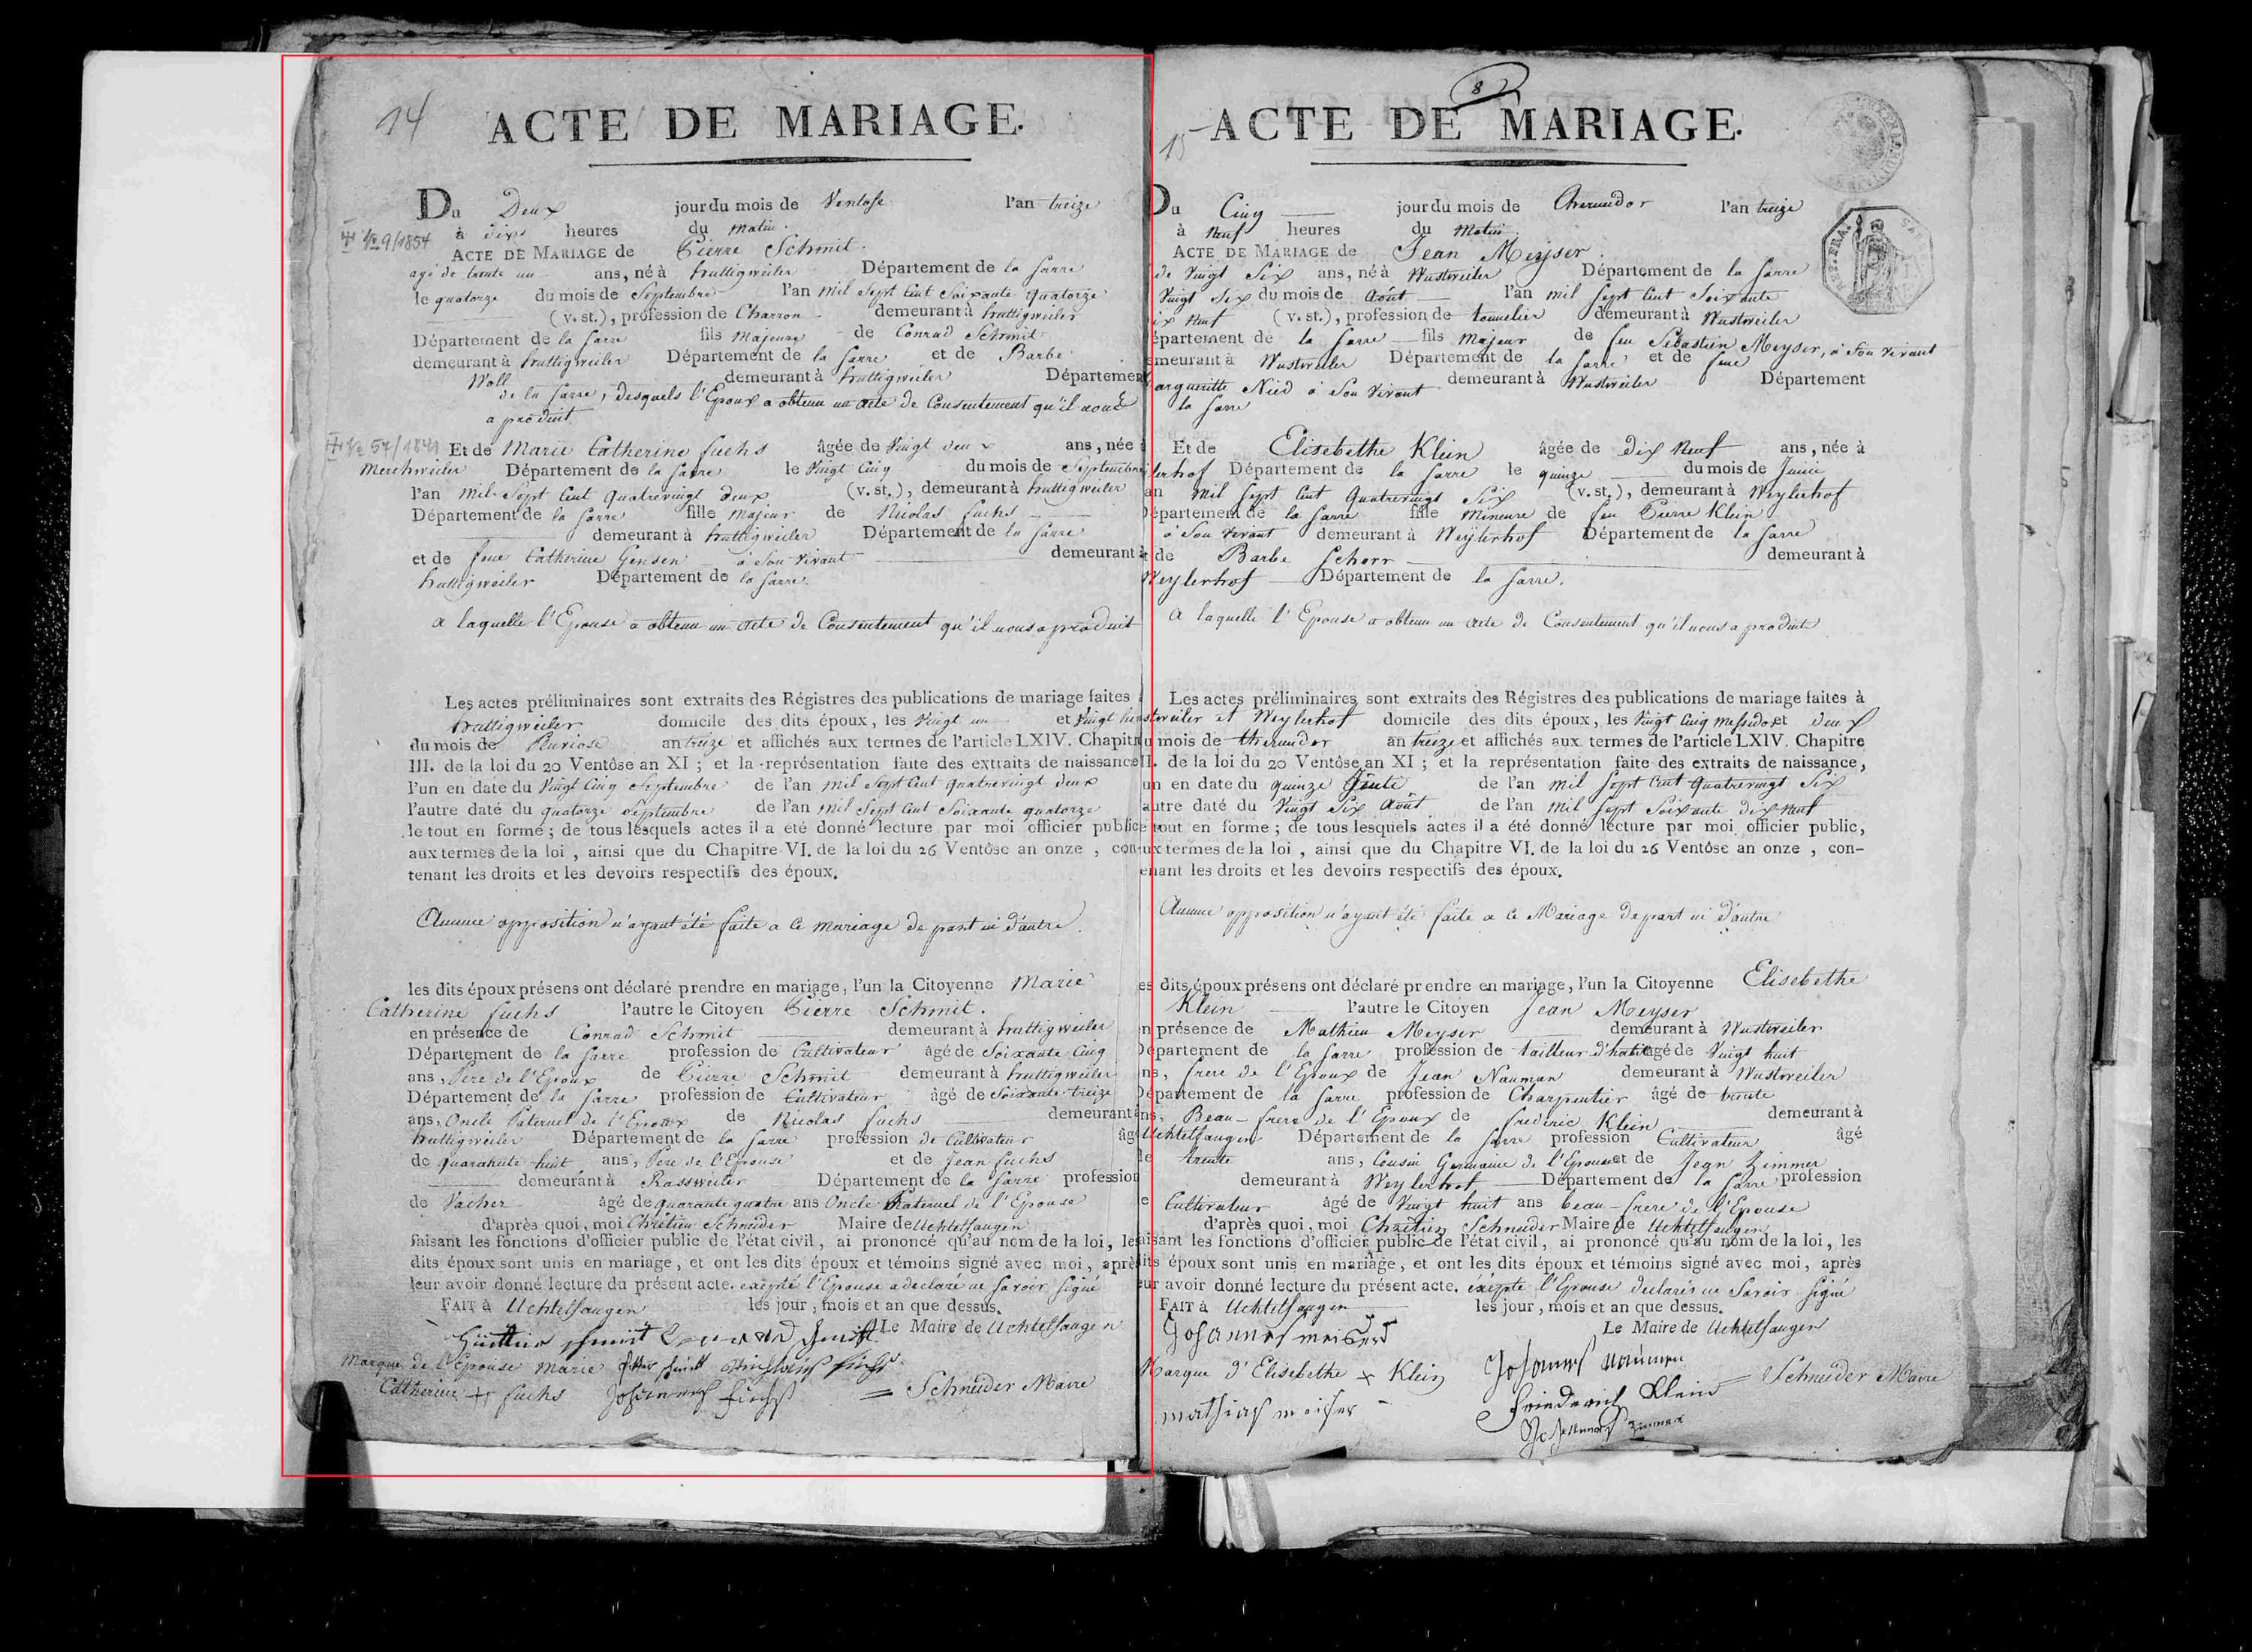 14
ACTE DE MARIAGE.
Du Deux jour du mois de Ventose l'an treize
à dix heures du matin.
№ 9/1854
ACTE DE MARIAGE de Pierre Schmit.
agé de trente un ans, né à huttigweiler Département de la Sarre
le quatorze du mois de Septembre l'an mil Sept Cent Soixante Quatorze
(v. st.), profession de Charron demeurant à huttigweiler
Département de la Sarre fils majeur de Conrad Schmit
demeurant à huttigweiler Département de la Sarre et de Barbe
Woll demeurant à huttigweiler Département
de la Sarre, desquels l'Epoux a obtenu un acte de Consentement qu'il nous
a produit
№ 57/1841 Et de Marie Catherine fuchs âgée de Vingt deux ans, née à
Merchweiler Département de la Sarre le Vingt Cinq du mois de Septembre
l'an mil Sept Cent Quatrevingt deux (v. st.), demeurant à huttigweiler
Département de la Sarre fille majeur de Nicolas fuchs
demeurant à huttigweiler Département de la Sarre
et de feue Catherine Gensen à Son Vivant demeurant à
huttigweiler Département de la Sarre.
a laquelle l'Epouse a obtenu un acte de Consentement qu'il nous a produit
Les actes préliminaires sont extraits des Régistres des publications de mariage faites
huttigweiler domicile des dits époux, les Vingt un et Vingt huit
du mois de Pluviose an treize et affichés aux termes de l'article LXIV. Chapitre
III. de la loi du 20 Ventôse an XI ; et la représentation faite des extraits de naissance
l'un en date du Vingt Cinq Septembre de l'an mil Sept Cent Quatrevingt deux
l'autre daté du quatorze Septembre de l'an mil Sept Cent Soixante quatorze
le tout en forme ; de tous lesquels actes il a été donné lecture par moi officier public
aux termes de la loi , ainsi que du Chapitre VI. de la loi du 26 Ventôse an onze , con-
tenant les droits et les devoirs respectifs des époux.
Aucune opposition n'ayant été faite a ce mariage de part ni d'autre.
les dits époux présens ont déclaré prendre en mariage, l'un la Citoyenne Marie
Catherine fuchs l'autre le Citoyen Pierre Schmit.
en présence de Conrad Schmit demeurant à huttigweiler
Département de la Sarre profession de Cultivateur âgé de Soixante Cinq
ans, Pere de l'Epoux de Pierre Schmit demeurant à huttigweiler
Département de la Sarre profession de Cultivateur âgé de Soixante treize
ans, Oncle Paternel de l'Epoux de Nicolas fuchs demeurant à
huttigweiler Département de la Sarre profession de Cultivateur âgé
de quarahute huit ans, Pere de l'Epouse et de Jean fuchs
demeurant à Rassweiler Département de la Sarre profession
de Vacher âgé de quarante quatre ans Oncle Paternel de l'Epouse
d'après quoi, moi Chrétien Schneider Maire de Uchtelfangen
faisant les fonctions d'officier public de l'état civil, ai prononcé qu'au nom de la loi, les
dits époux sont unis en mariage, et ont les dits époux et témoins signé avec moi, après
leur avoir donné lecture du présent acte. excepté l'Epouse a declaré ne Savoir signé
FAIT à Uchtelfangen les jour, mois et an que dessus.
Le Maire de Uchtelfangen
Marque de l'Epouse Marie
Catherine fuchs
Schneider Maire
8
15
ACTE DE MARIAGE.
Du Cinq jour du mois de Thermidor l'an treize
à Neuf heures du Matin
ACTE DE MARIAGE de Jean Meyser.
de Vingt Six ans, né à Wustweiler Département de la Sarre
Vingt Six du mois de Août l'an mil Sept Cent Soixante
ix Neuf (v. st.), profession de tonnelier demeurant à Wustweiler
épartement de la Sarre fils majeur de feu Sébastien Meyser, à Son Vivant
emeurant à Wustweiler Département de la Sarre et de feue
argueritte Nied à Son Vivant demeurant à Wustweiler Département
la Sarre
Et de Elisebethe Klein âgée de Dix Neuf ans, née à
lerhof Département de la Sarre le quinze du mois de Juin
an mil Sept Cent Quatrevingt Six (v. st.), demeurant à Weylerhof
Département de la Sarre fille Mineure de feu Pierre Klein
à Son Vivant demeurant à Weylerhof Département de la Sarre
de Barbe Schorr demeurant à
Weylerhof Département de la Sarre.
a laquelle l'Epouse a obtenu un acte de Consentement qu'il nous a produit
Les actes préliminaires sont extraits des Régistres des publications de mariage faites à
stweiler et Weylerhof domicile des dits époux, les Vingt Cinq messidor et deux
u mois de thermidor an treize et affichés aux termes de l'article LXIV. Chapitre
II. de la loi du 20 Ventôse an XI ; et la représentation faite des extraits de naissance,
un en date du quinze de l'an mil Sept Cent Quatrevingt Six
autre daté du Vingt Six Août de l'an mil Sept Soixante dix Neuf
tout en forme ; de tous lesquels actes il a été donné lecture par moi officier public,
ux termes de la loi , ainsi que du Chapitre VI. de la loi du 26 Ventôse an onze , con-
enant les droits et les devoirs respectifs des époux.
Aucune opposition n'ayant été faite a ce Mariage de part ni d'autre
es dits époux présens ont déclaré prendre en mariage, l'un la Citoyenne Elisebethe
Klein l'autre le Citoyen Jean Meyser
en présence de Mathieu Meyser demeurant à Wustweiler
Département de la Sarre profession de tailleur d'habit âgé de Vingt huit
ns, frere de l'Epoux de Jean Nauman demeurant à Wustweiler
Département de la Sarre profession de Charpentier âgé de trente
ans, Beau-frere de l'Epoux de frederic Klein demeurant à
Uchtelfangen Département de la Sarre profession Cultivateur âgé
de trente ans, Cousin Germaine de l'Epouse et de Jean Zimmer
demeurant à Weylerhof Département de la Sarre profession
e Cultivateur âgé de Vingt huit ans beau-frere de l'Epouse
d'après quoi, moi Chrétien Schneider Maire de Uchtelfangen
aisant les fonctions d'officier public de l'état civil, ai prononcé qu'au nom de la loi, les
dits époux sont unis en mariage, et ont les dits époux et témoins signé avec moi, après
eur avoir donné lecture du présent acte. éxépte l'Epouse declarés ne Savoir signé
FAIT à Uchtelfangen les jour, mois et an que dessus.
Le Maire de Uchtelfangen
Johannes meiser
Marque d'Elisebethe x Klein
Johannes Naumen
Schneider Maire
mathias meiser
friederich Klein
Johannes Zimmer